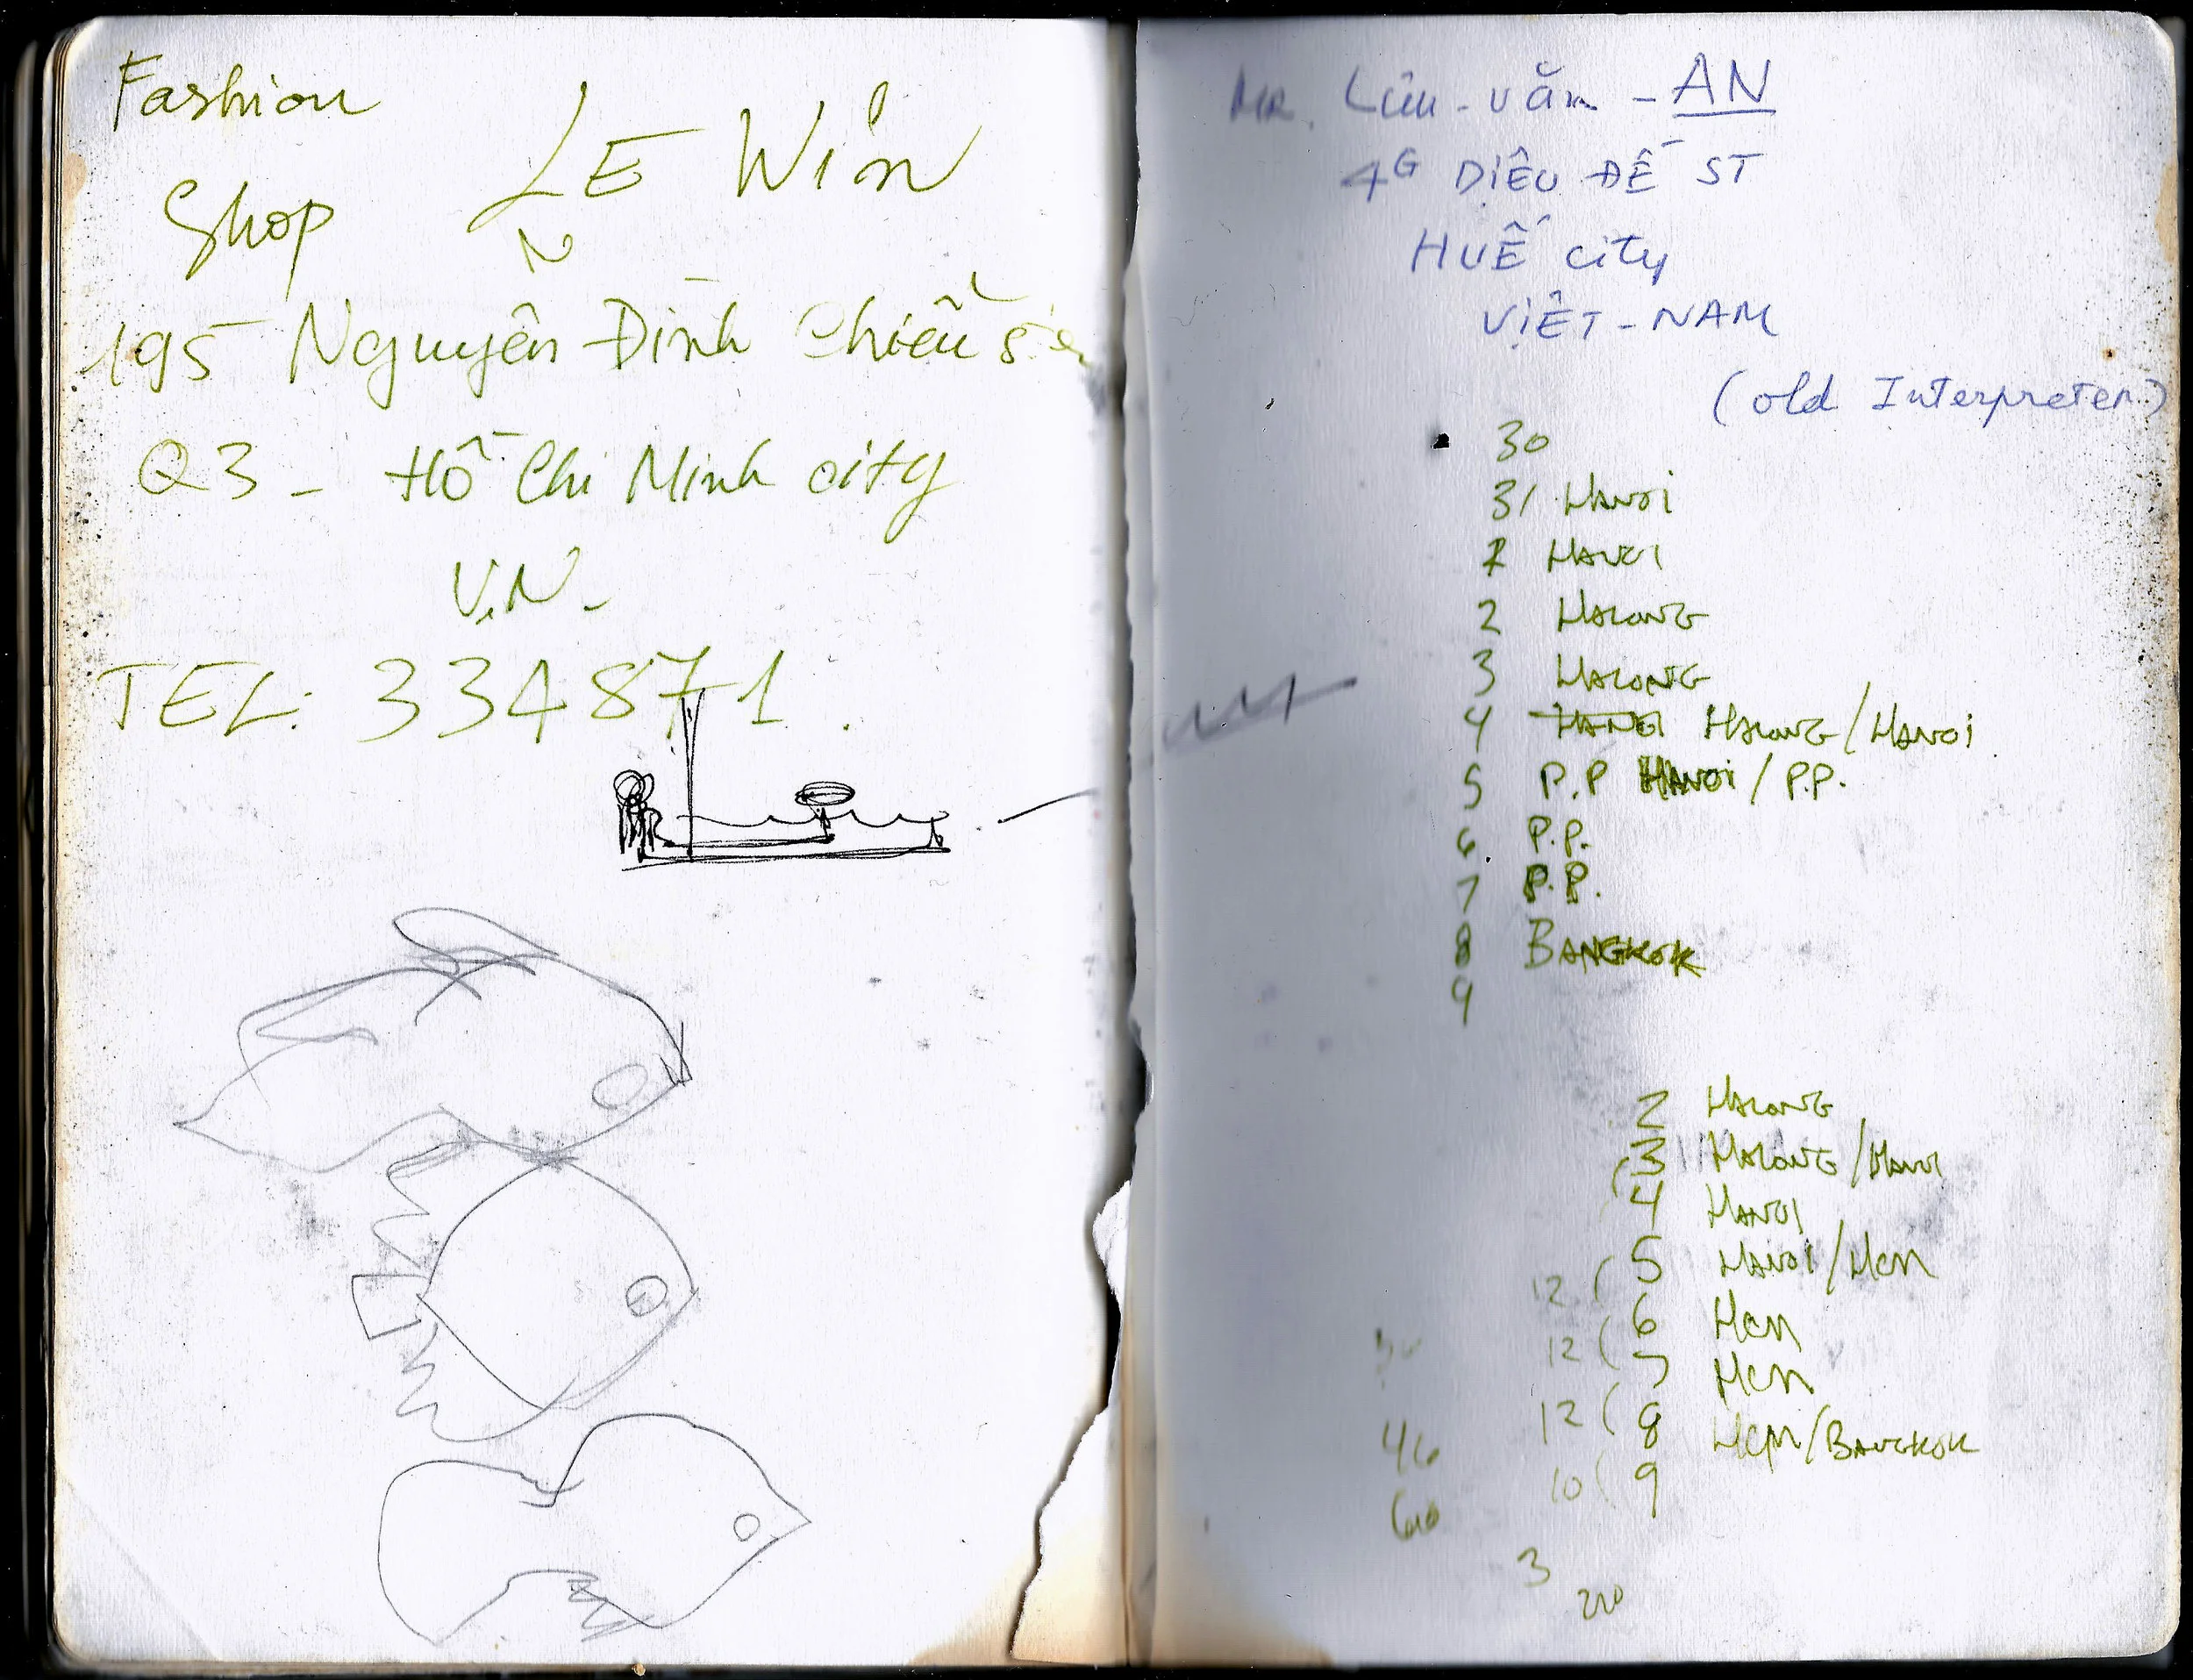 Fashion
Shop LE Win
195 Nguyễn Đình Chiểu
Q3 - Hồ Chi Minh city
V.N.
TEL: 334871.
MR. Lưu-văn-AN
4G DIỆU ĐẾ ST
HUẾ city
VIỆT-NAM
(old Interpreter)
30
31 HANOI
1 HANOI
2 HALONG
3 HALONG
4 HANOI HALONG/HANOI
5 P.P HANOI/P.P.
6 P.P.
7 P.P.
8 BANGKOK
9
2 HALONG
3 HALONG/HANOI
4 HANOI
12 ( 5 HANOI/HCM
12 ( 6 HCM
7 HCM
12 ( 8 HCM/BANGKOK
46 10 ( 9
3